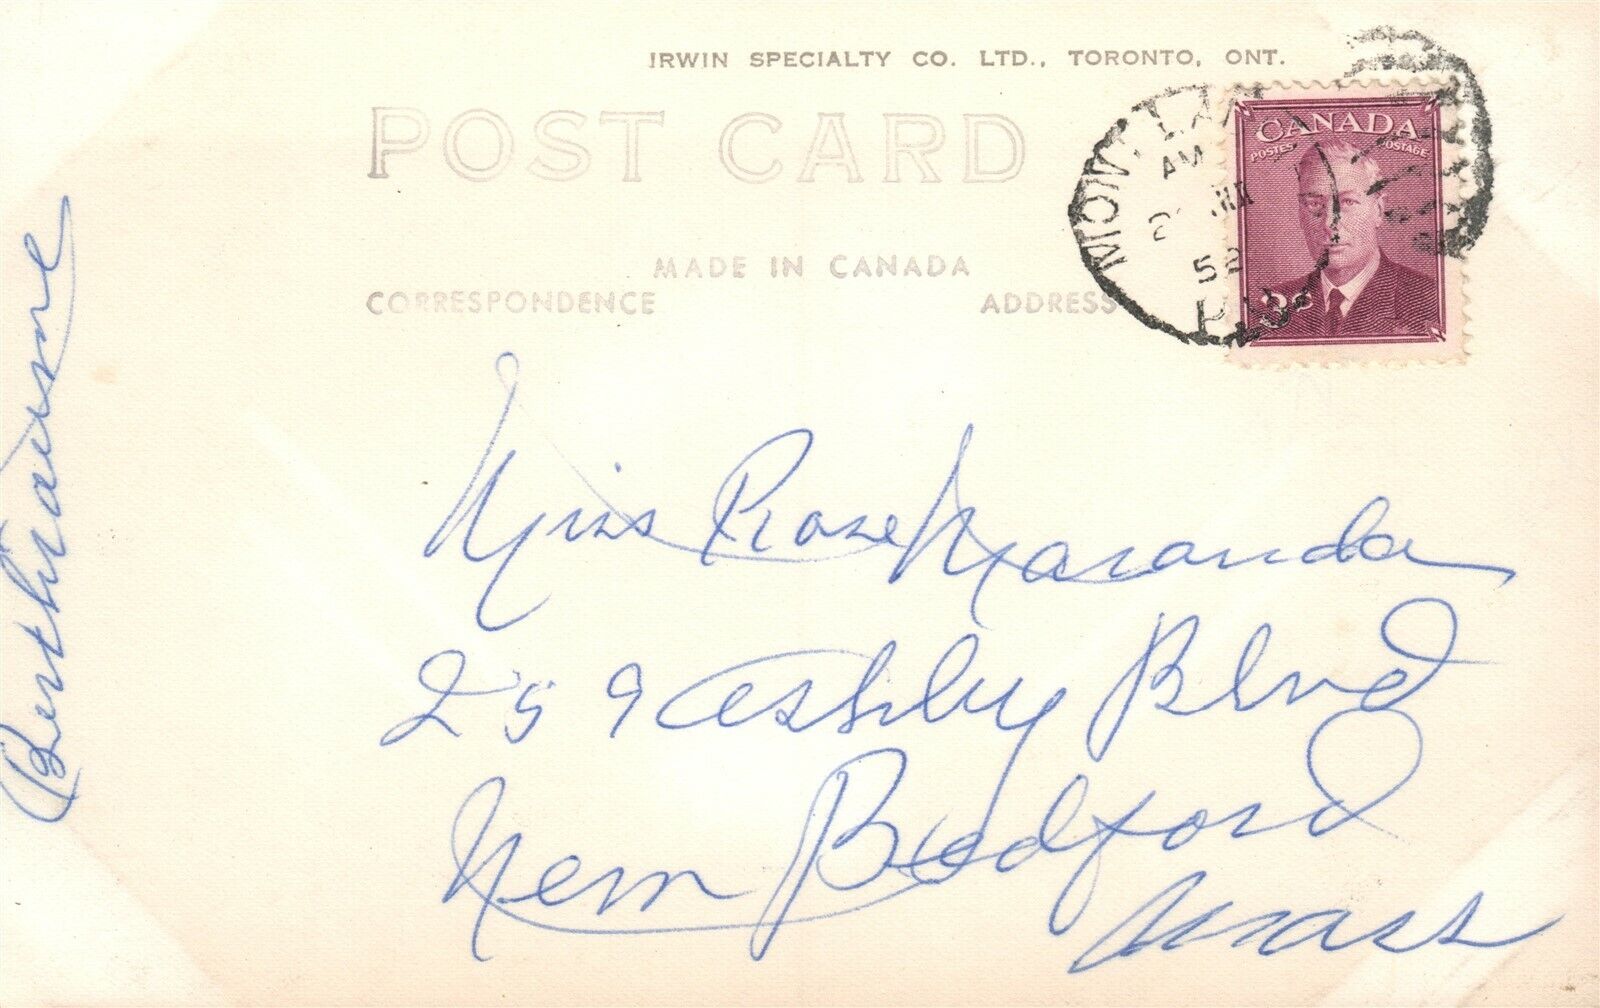 IRWIN SPECIALTY CO. LTD., TORONTO, ONT.
POST CARD
MADE IN CANADA
CORRESPONDENCE
ADDRESS
CANADA
POSTES POSTAGE
3¢
AM
52
Miss Rose Maranda
259 Ashley Blvd
New Bedford
Mass